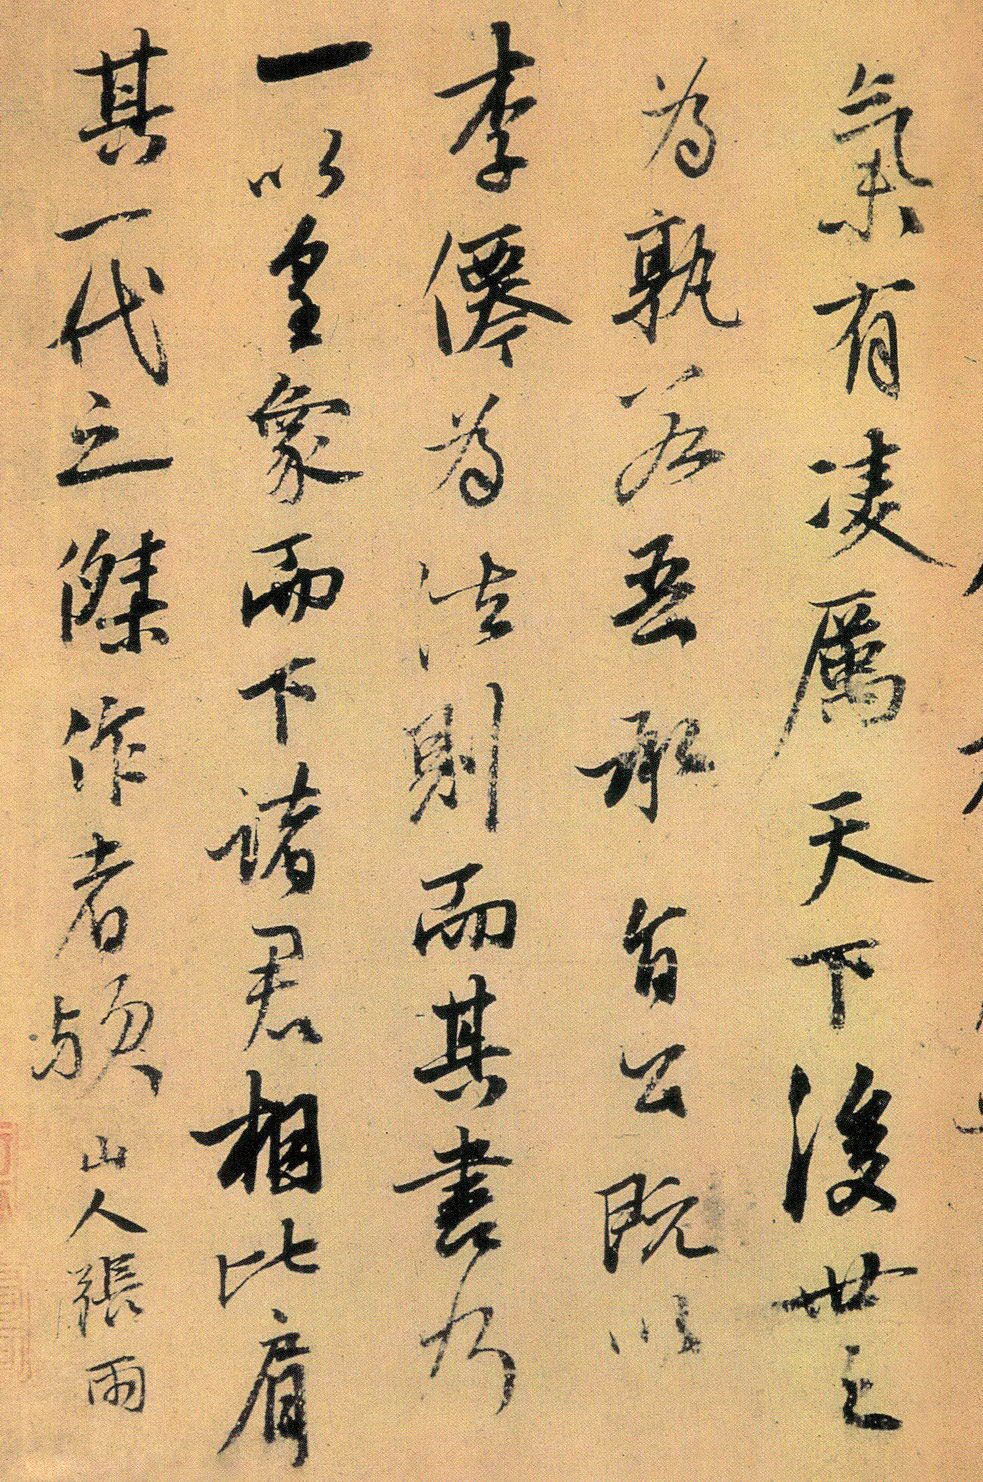 氣有凌厲天下後世之
為孰若吾承旨公既以
李僊為法則而其書乃
一以皇象而下諸君相比肩
其一代之傑作者歟
山人張雨